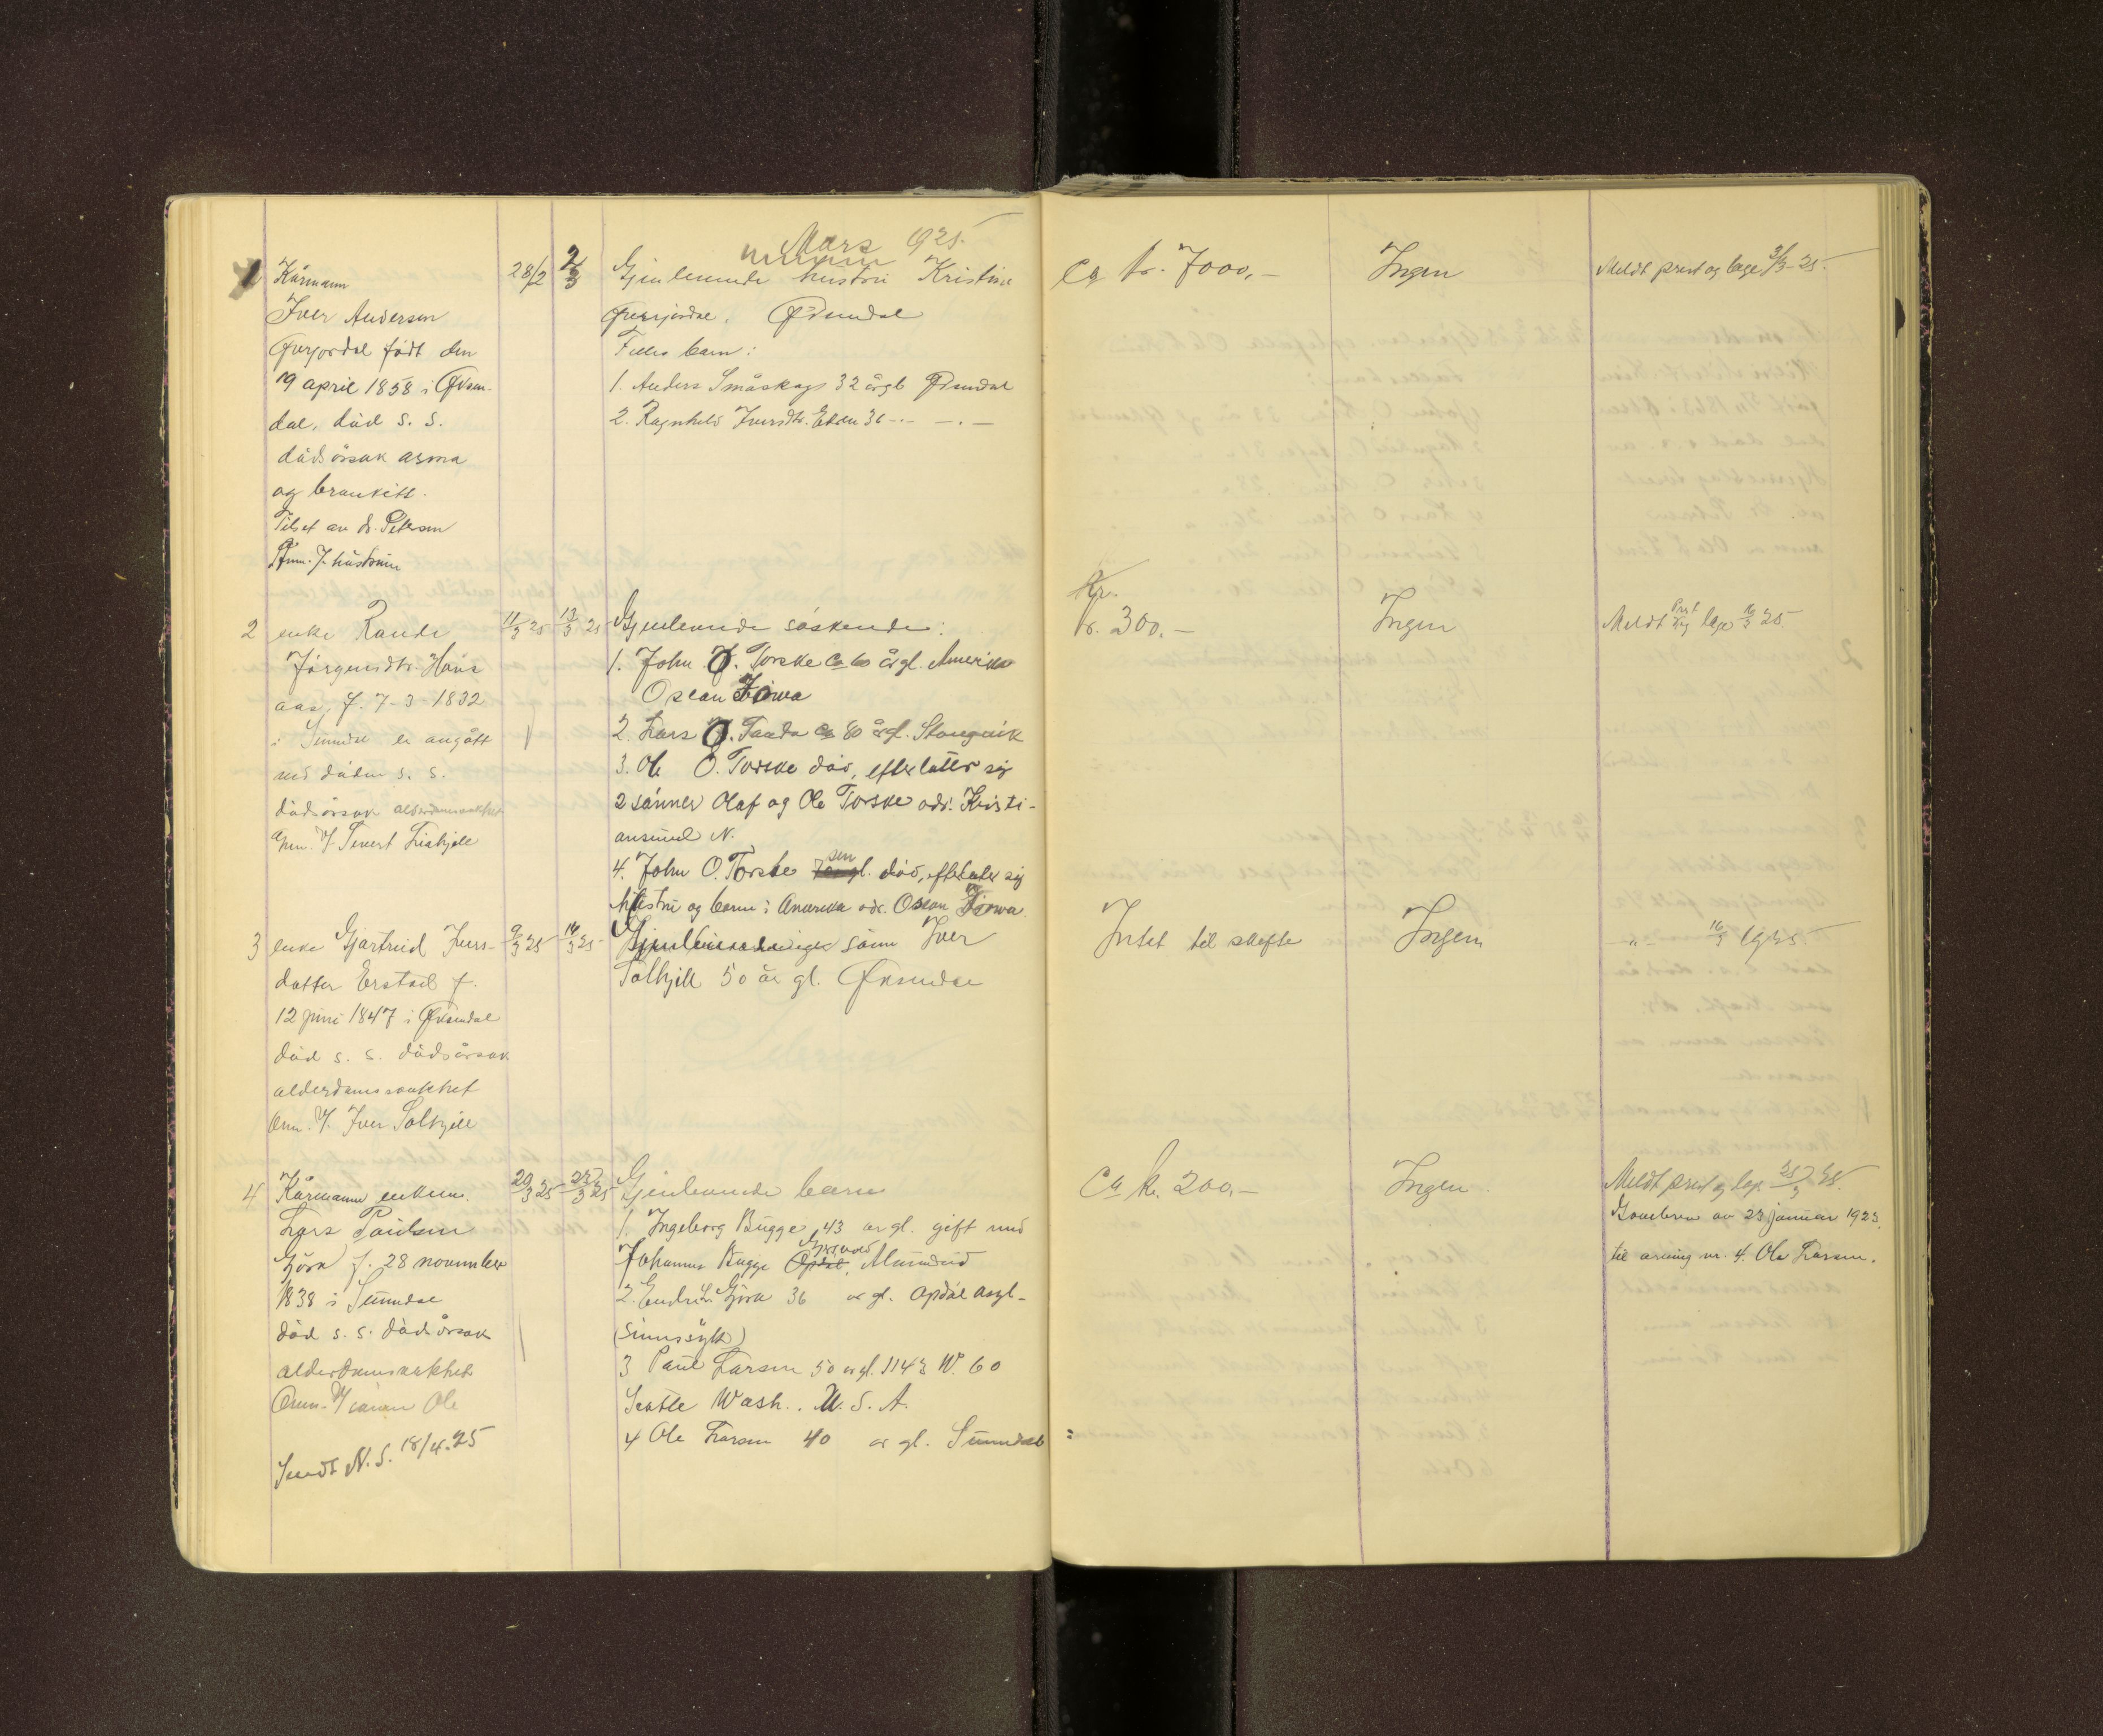 Mars 1925.
1 Kårmann
Iver Andersen
Øverjordal född den
19 april 1858 i Øksen-
dal, död s. s.
dödsörsak asma
og bronkitt.
Tilset av dr. Petersen
Anm. f. hustruen
28/2
2/3
Gjenlevende hustru Kristine
Øverjordal, Øksendal
Felles barn:
1. Anders Småskage 32 årgl Øksendal
2. Ragnhild Iversdtr. 36 -.- -.-
Ca kr. 7000,-
Ingen
Meldt prest og lege 3/3-25.
2 enke Rande
Jörgensdtr. Hovs
aas, f. 7-3 1832
i Sunndal er avgått
ved döden s. s.
dödsörsak alderdomssvakhet
Anm. v/ Sivert
11/3 25
13/3 25
Gjenlevende söskende:
1. John O. Torske ca 60 årgl. Amerika
Oslan Iowa
2. Lars O. Taada ca 80 årgl. Stangvik
3. Ole O. Torske död, efterlater sig
2 sönner Olaf og Ole Torske adr. Kristi-
ansund N.
4. John O. Torske sen död, efterlater sig
hustru og barn i Amerika adr. Oslan Iowa.
Kr.
kr. 300.-
Ingen
Meldt Prest og lege 16/3 25
3 enke Gjartrud Ivers-
datter Erstad f.
12 juni 1847 i Øksendal
död s. s. dödsårsak
alderdomssvakhet
Anm. v/. Iver Tolhjell
9/3 25
16/3 25
Gjenlevende sönn Iver
Tolhjell 50 år gl. Øksendal
Intet til skifte
Ingen
-"- 16/3 1925
4 Kårmann enkem.
Lars Paulsen
Gjöra f. 28 november
1838 i Sunndal
död s. s. dödsårsak
alderdomssvakhet
Anm. v/ sönnen Ole
Sendt N. S. 18/4.25
20/3 25
25/3 25
Gjenlevende barn
1. Ingeborg Bugge, 43 år gl. gift med
Johannes Bugge Opdal,
2. Endre L. Gjöra 36 år gl. Opdal asyl-
(sinnssyk)
3 Paul Larsen 50 årgl. 1143 W. 60
Seatle Wash.. U. S. A.
4 Ole Larsen 40 år gl. Sunndal
Ca kr. 200,-
Ingen
Meldt prest og lege 25/3 25.
Gavebrev av 23 januar 1923.
til arving nr. 4. Ole Larsen.